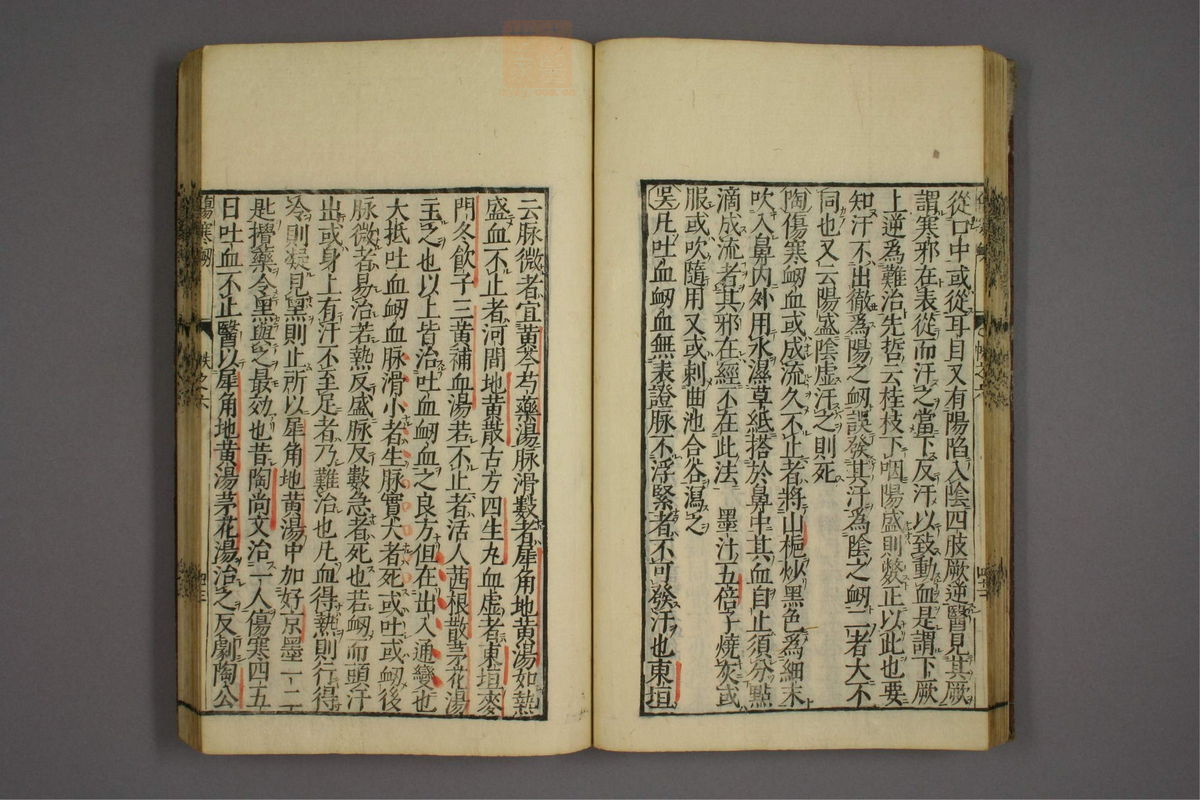 從口中或從耳目又有陽陷入陰四肢厥逆醫見其厥
謂寒邪在表從而汗之當下反汗以致動血是謂下厥
上逆爲難治先哲云桂枝下咽陽盛則斃正以此也要
知汗不出徹爲陽之衂誤發其汗爲陰之衂二者大不
同也又云陽盛陰虛汗之則死
陶傷寒衂血或成流久不止者將山梔炒黑色爲細末
吹入鼻內外用水濕草紙搭於鼻中其血自止須分點
滴成流者其邪在經不在此法 墨汁五倍子燒灰或
服或吹隨用又或刺曲池合谷瀉之
吳凡吐血衂血無表證脉不浮緊者不可發汗也東垣
云脉微者宜黄芩芍藥湯脉滑數者犀角地黄湯如熱
盛血不止者河間地黄散古方四生丸血虛者東垣麥
門冬飲子三黄補血湯若不止者活人茜根散茅花湯
主之也以上皆治吐血衂血之良方但在出入通變也
大抵吐血衂血脉滑小者生脉實大者死或吐或衂後
脉微者易治若熱反盛脉反數急者死也若衂而頭汗
出或身上有汗不至足者乃難治也凡血得熱則行得
冷則凝見黑則止所以犀角地黄湯中加好京墨一二
匙攪藥令黑與之最効也昔陶尚文治一人傷寒四五
日吐血不止醫以犀角地黄湯茅花湯治之反劇陶公
傷寒衂
帙之六
四十三